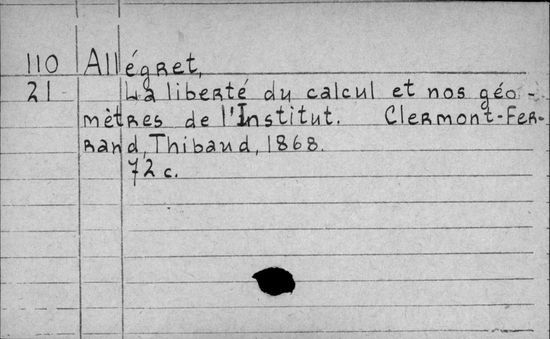 110 Allégret,
21 La liberté du calcul et nos géo-
mètres de l'Institut. Clermont-Fer-
rand, Thibaud, 1868.
72 c.